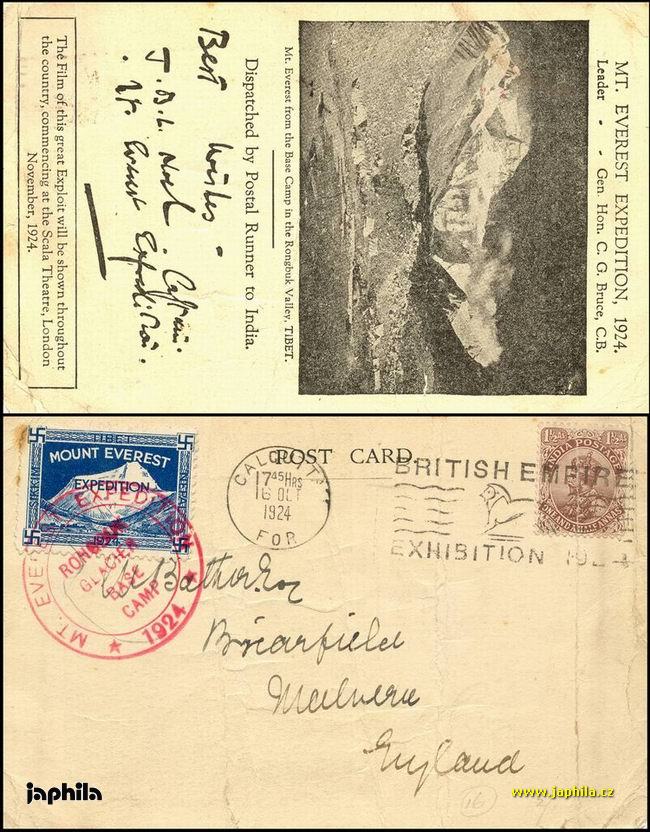 MT. EVEREST EXPEDITION, 1924.
Leader - - Gen. Hon. C. G. Bruce, C.B.
Mt. Everest from the Base Camp in the Rongbuk Valley, TIBET.
Dispatched by Postal Runner to India.
Best Wishes -
J.B.L. Noel Captain.
Mt Everest Expedition.
The Film of this great Exploit will be shown throughout
the country, commencing at the Scala Theatre, London
November, 1924.
POST CARD.
TIBET
MOUNT EVEREST
EXPEDITION
1924
SIKKIM
NEPAL
MT. EVEREST EXPEDITION
RONGBUK
GLACIER
BASE
CAMP
1924
CALCUTTA
17 45 HRS
16 OCT
1924
FOR
BRITISH EMPIRE
EXHIBITION 1924
1½As 1½As
INDIA POSTAGE
ONE AND A HALF ANNAS
Batho Esq
Briarfield
Malvern
England
16
japhila
www.japhila.cz